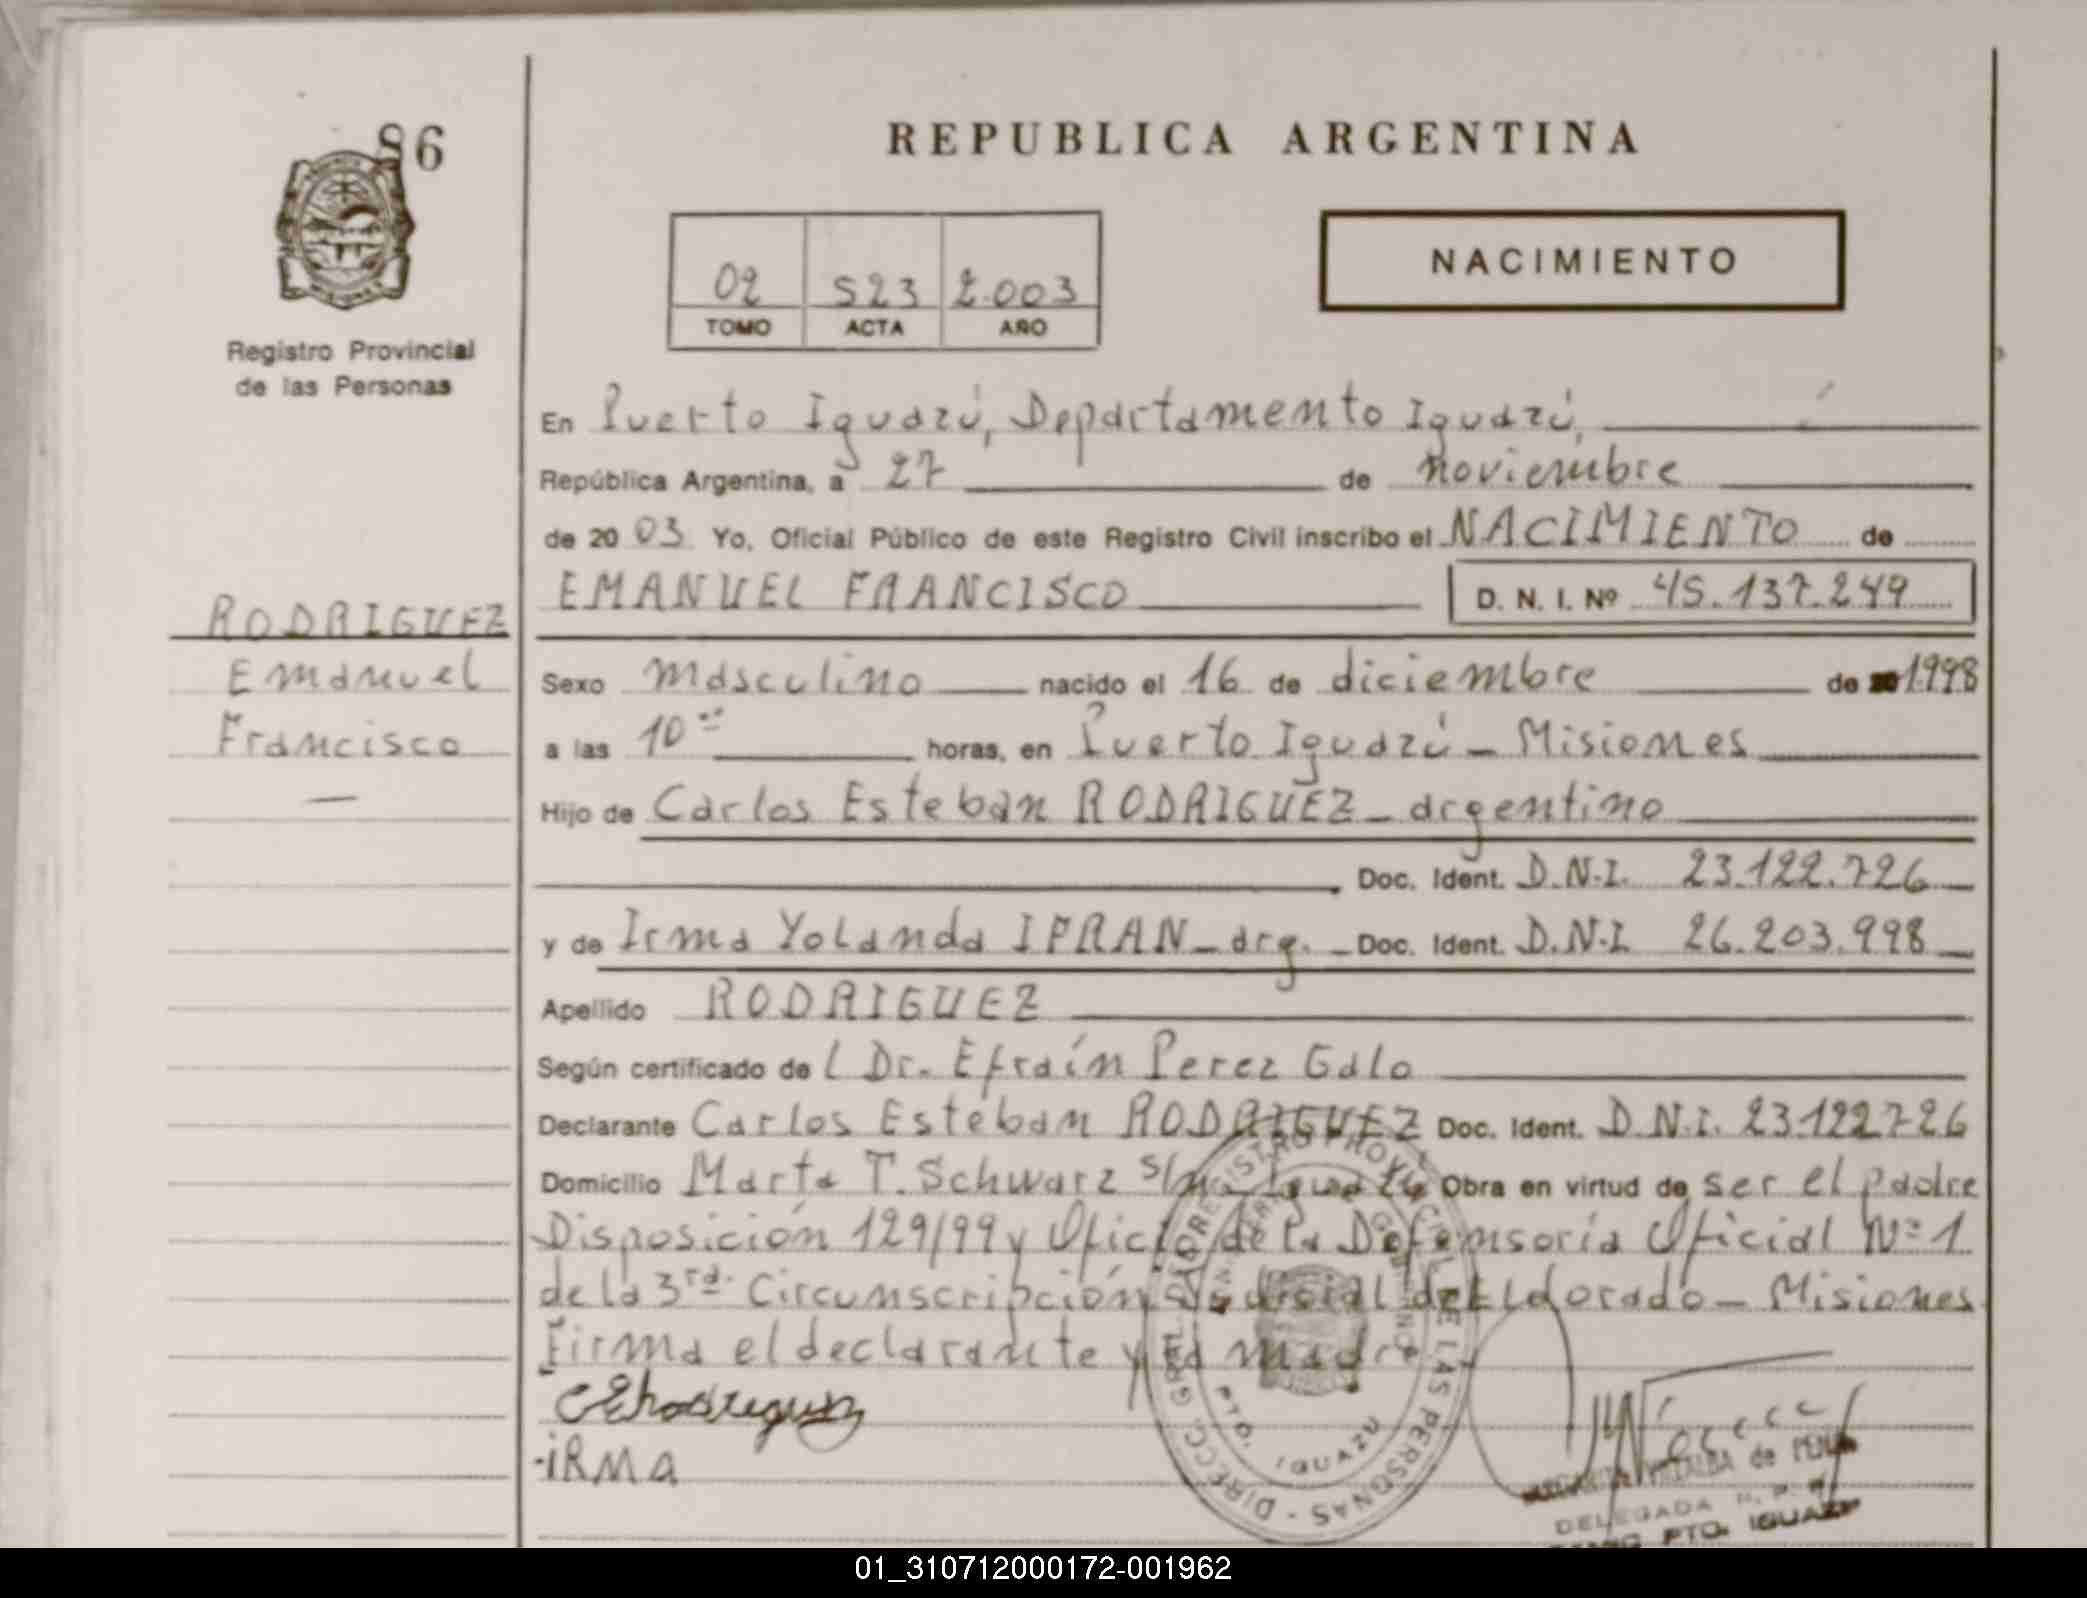 86
REPUBLICA ARGENTINA
NACIMIENTO
02 523 2.003
TOMO ACTA AÑO
Registro Provincial
de las Personas
En Puerto Iguazú, Departamento Iguazú,
República Argentina, a 27 de noviembre
de 20 03 Yo, Oficial Público de este Registro Civil inscribo el NACIMIENTO de
EMANUEL FRANCISCO D. N. I. Nº 45.137.249
RODRIGUEZ
Emanuel
Francisco
Sexo masculino nacido el 16 de diciembre de 1998
a las 10 horas, en Puerto Iguazú - Misiones
Hijo de Carlos Esteban RODRIGUEZ - argentino
Doc. Ident. D.N.I. 23.122.726
y de Irma Yolanda IFRAN - arg. - Doc. Ident. D.N.I. 26.203.998
Apellido RODRIGUEZ
Según certificado de l Dr. Efraín Perez Galo
Declarante Carlos Esteban RODRIGUEZ Doc. Ident. D.N.I. 23.122.726
Domicilio Marta T. Schwarz s/n - Iguazú Obra en virtud de ser el padre
Disposición 129/99 y Oficio de la Defensoría Oficial Nº 1
de la 3ra. Circunscripción Judicial de Eldorado - Misiones
Firma el declarante y la madre
CERodriguez
IRMA
DIRECC. GRAL. DE REGISTRO PROVINCIAL DE LAS PERSONAS
PTO. IGUAZU
DELEGADA R. P. P.
PTO. IGUAZU
01_310712000172-001962